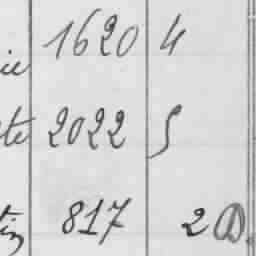 ie 1620 4
te 2022 5
tin 817 2